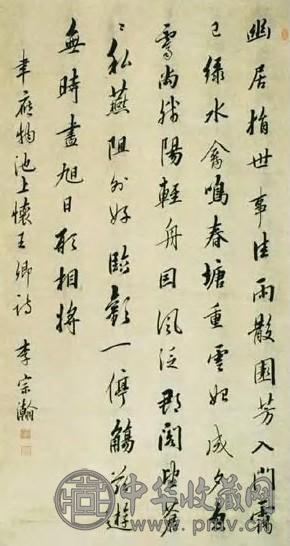 幽居捐世事佳雨散園芳入門靄
已緑水禽鳴春塘重雲始成夕忽
霽尚殘陽輕舟因風泛郡閣望蒼
〻私燕阻外好臨歡一停觴茲遊
無時盡旭日願相將
韋應物池上懷王卿詩 李宗瀚
中华收藏网